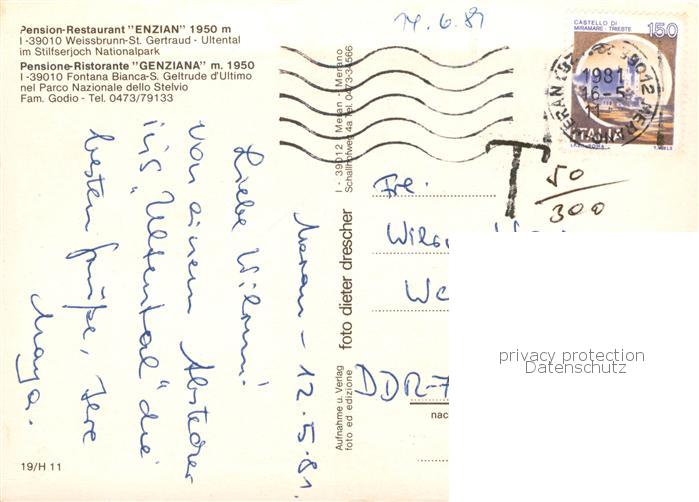 Pension-Restaurant "ENZIAN" 1950 m
I-39010 Weissbrunn-St. Gertraud - Ultental
im Stilfserjoch Nationalpark
Pensione-Ristorante "GENZIANA" m. 1950
I-39010 Fontana Bianca-S. Geltrude d'Ultimo
nel Parco Nazionale dello Stelvio
Fam. Godio - Tel. 0473/79133
Meran - 12.5.81.
Liebe Wilmi!
Von einem Abstecher
ins "Ultental" die
besten Grüße, Ihre
Marya.
19/H 11
I - 39012 Meran - Merano
Schallhofweg 4a Tel. 0473-34566
foto dieter drescher
Aufnahme u. Verlag
foto ed edizione
14.6.81
CASTELLO DI
MIRAMARE - TRIESTE
150
ITALIA
39012
1981
16-5
T
50
300
Frl.
DDR-7
nac
privacy protection
Datenschutz